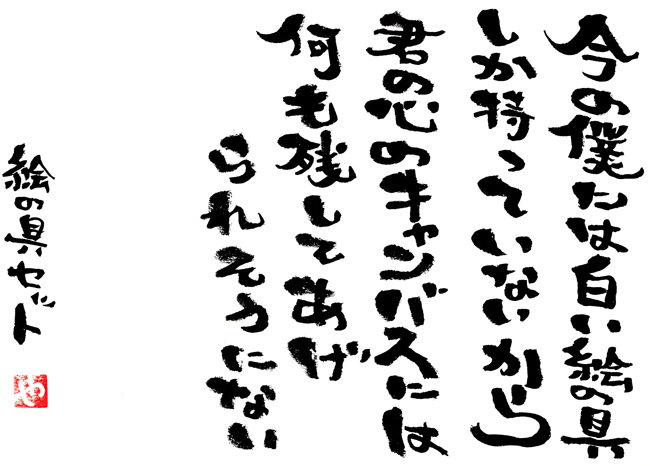 今の僕には白い絵の具
しか持っていないから
君の心のキャンバスには
何も残してあげ
られそうにない
絵の具セット